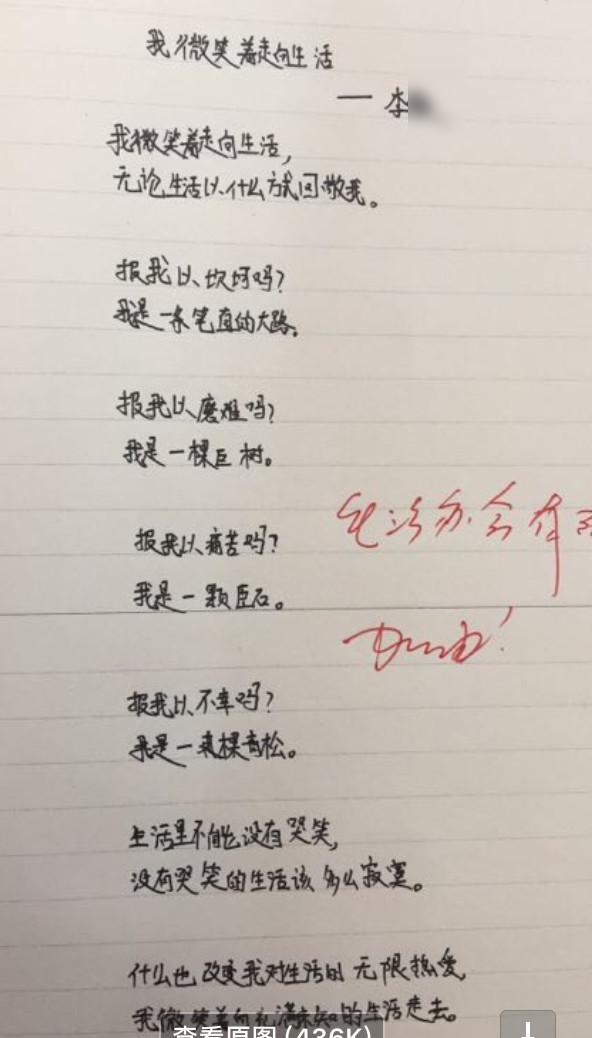 我微笑着走向生活
— 李
我微笑着走向生活,
无论生活以什么方式回敬我。
报我以坎坷吗?
我是一条笔直的大路。
报我以磨难吗?
我是一棵巨树。
报我以痛苦吗?
我是一颗巨石。
加油!
报我以不幸吗?
我是一棵青松。
生活里不能没有哭笑,
没有哭笑的生活该多么寂寞。
什么也改变我对生活的无限热爱,
我微笑着向充满未知的生活走去。
查看原图(436K)